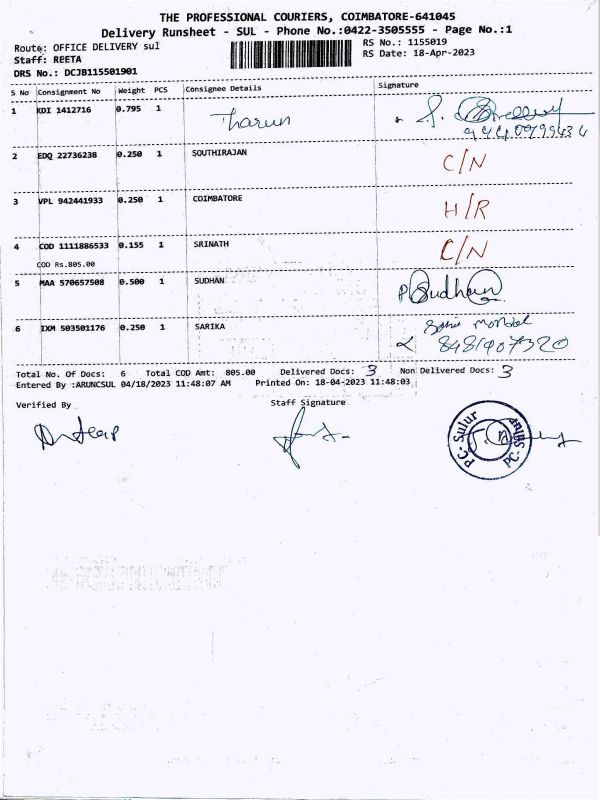 THE PROFESSIONAL COURIERS, COIMBATORE-641045
Delivery Runsheet - SUL - Phone No.:0422-3505555 - Page No.:1
Route: OFFICE DELIVERY sul RS No.: 1155019
Staff: REETA RS Date: 18-Apr-2023
DRS No.: DCJB115501901
S No Consignment No Weight PCS Consignee Details Signature
1 KDI 1412716 0.795 1 Tharun
2 EDQ 22736238 0.250 1 SOUTHIRAJAN C/N
3 VPL 942441933 0.250 1 COIMBATORE H/R
4 COD 1111886533 0.155 1 SRINATH C/N
COD Rs.805.00
5 MAA 570657508 0.500 1 SUDHAN P. Sudhan
6 IXM 503501176 0.250 1 SARIKA
8481907320
Total No. Of Docs: 6 Total COD Amt: 805.00 Delivered Docs: 3 Non Delivered Docs: 3
Entered By :ARUNCSUL 04/18/2023 11:48:07 AM Printed On: 18-04-2023 11:48:03
Verified By Staff Signature
PC-Sulur PC-Sulur